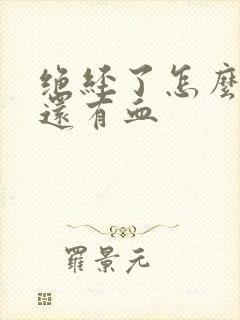 绝经了怎麼
還有血
羅景元